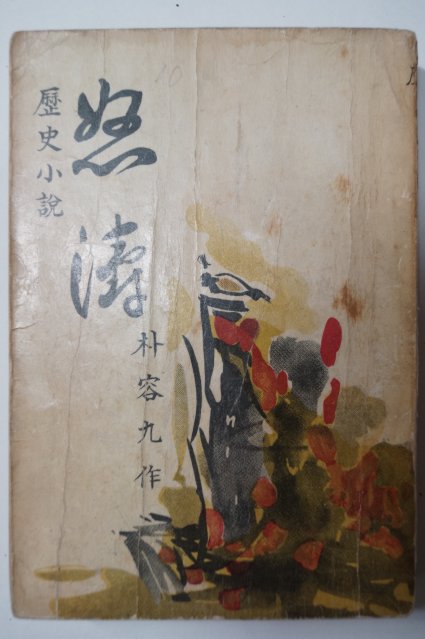 歷史小說
怒濤
朴容九作
10